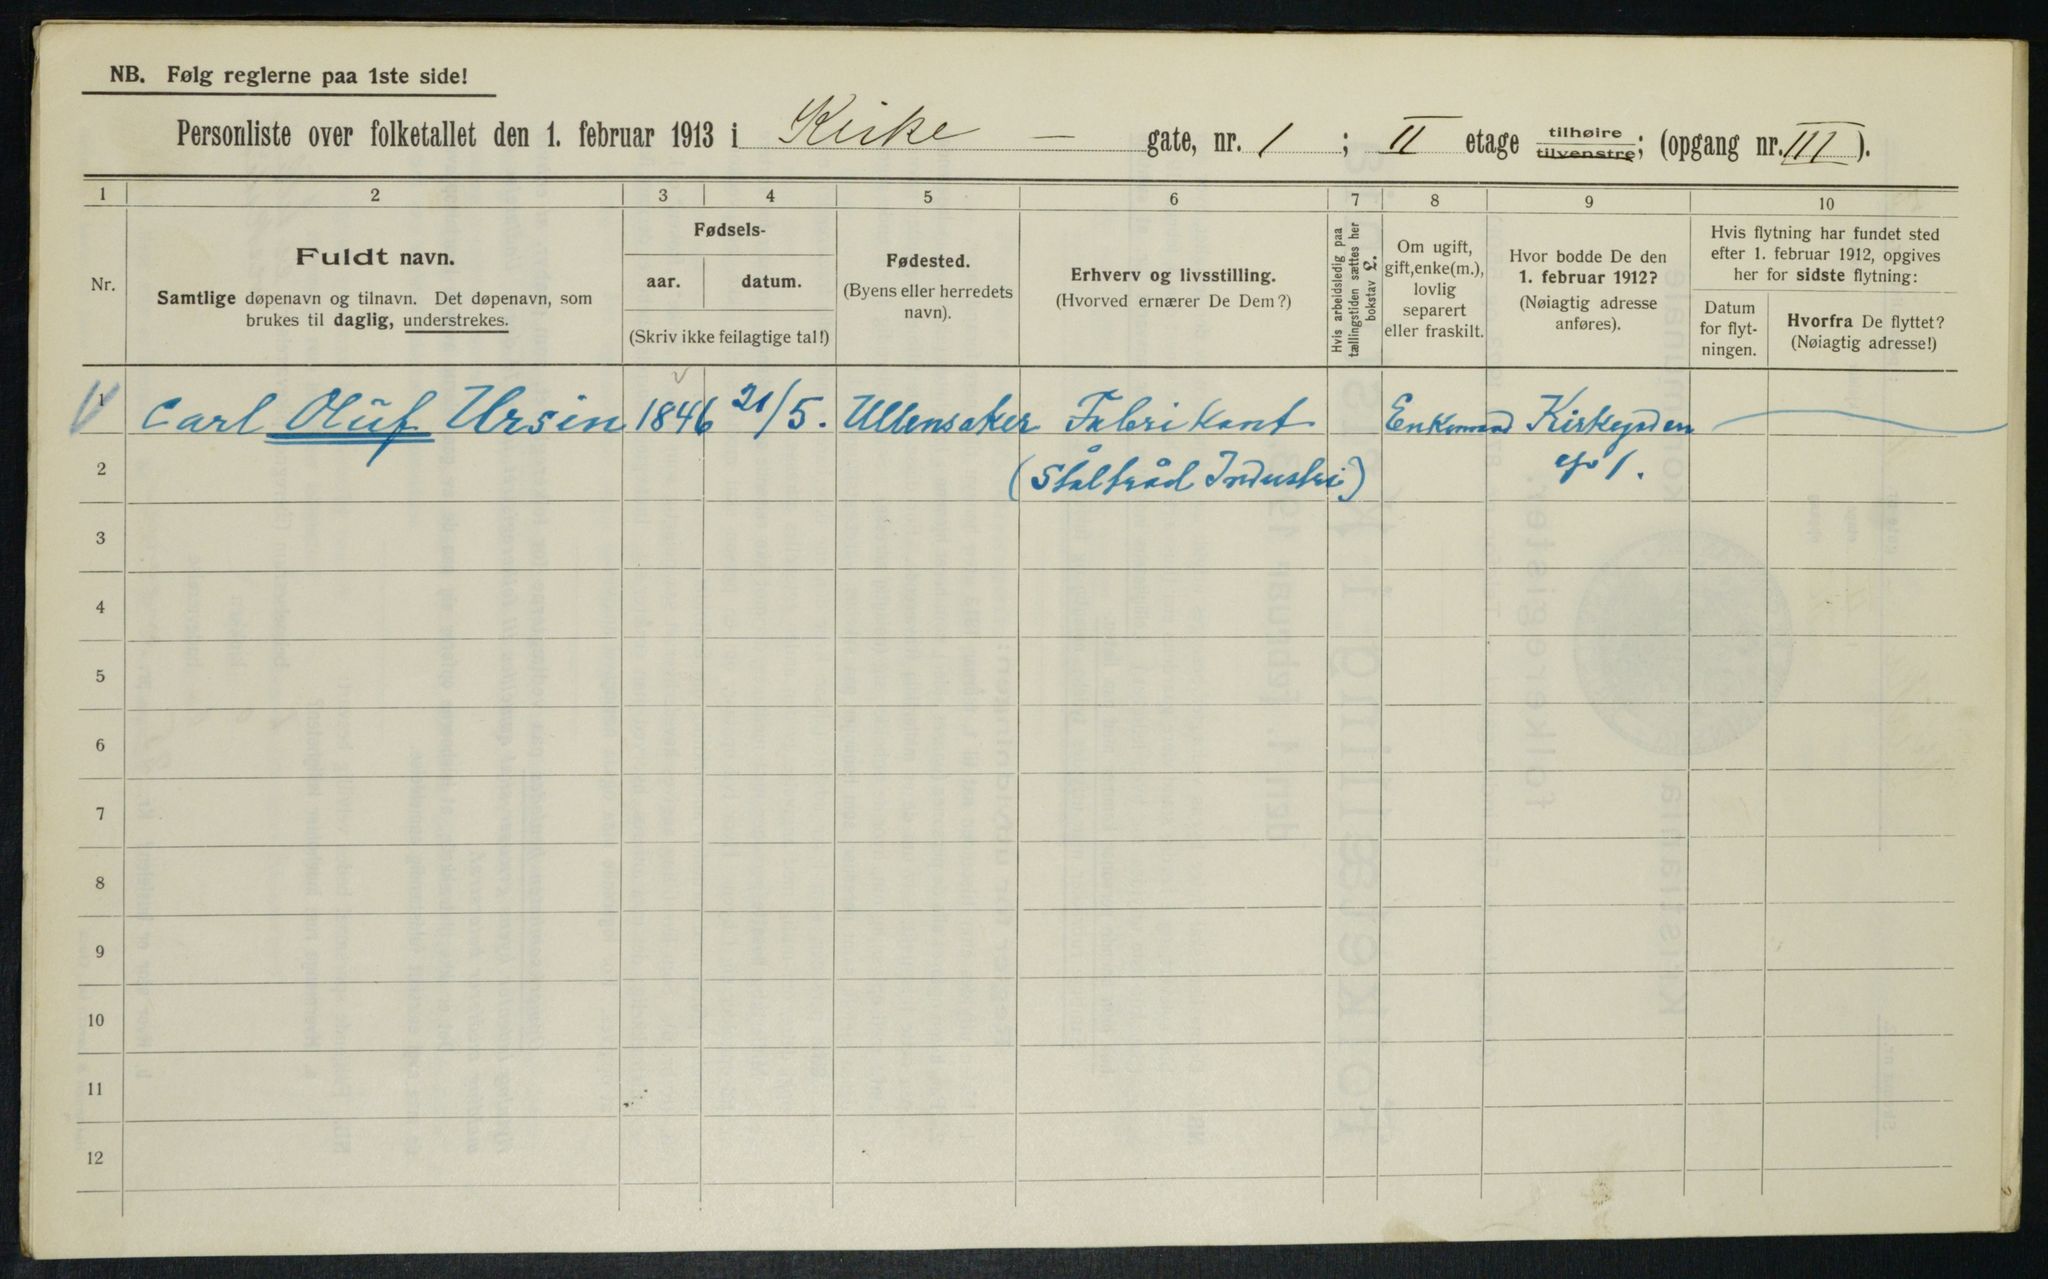 NB. Følg reglerne paa 1ste side!
Personliste over folketallet den 1. februar 1913 i Kirke — gate, nr. 1 ; II etage tilhøire tilvenstre; (opgang nr. III ).
1 2 3 4 5 6 7 8 9 10
Nr.
Fuldt navn.
Samtlige døpenavn og tilnavn. Det døpenavn, som
brukes til daglig, understrekes.
Fødsels-
aar. datum.
(Skriv ikke feilagtige tal!)
Fødested.
(Byens eller herredets
navn).
Erhverv og livsstilling.
(Hvorved ernærer De Dem?)
Hvis arbeidsledig paa
tællingstiden sættes her
bokstav L.
Om ugift,
gift, enke(m.),
lovlig
separert
eller fraskilt.
Hvor bodde De den
1. februar 1912?
(Nøiagtig adresse
anføres).
Hvis flytning har fundet sted
efter 1. februar 1912, opgives
her for sidste flytning:
Datum
for flyt-
ningen.
Hvorfra De flyttet?
(Nøiagtig adresse!)
1 Carl Oluf Ursin 1846 21/5. Ullensaker Fabrikant Enkemand Kirkegden
2 (Ståltråd Industri) 1.
3
4
5
6
7
8
9
10
11
12